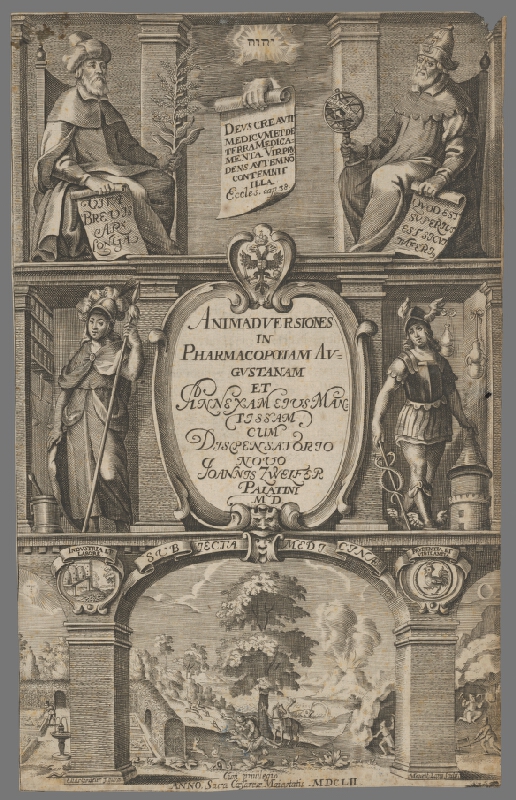 יהוה
DEVS CREAVIT
MEDICVM ET DE
TERRA MEDICA-
MENTA VIR PRV
DENS AVTEM NO
CONTEMNIT
ILLA.
Eccles. cap. 38
VITA
BREVIS
ARS
LONGA
QVOD EST
SVPERIVS
EST SICVT
INFERI9
ANIMADVERSIONES
IN
PHARMACOPŒIAM AV-
GVSTANAM
ET
ANNEXAM EJUS MAN-
TISSAM
CUM
DISPENSATORIO
NOVO
JOANNIS ZWELFER
PALATINI
M D
SUBJECTA MEDICINA
INDVSTRIA ET
LABORE
Cum privilegio
ANNO. Sacræ Cæsareæ Maiestatis. MDCLII